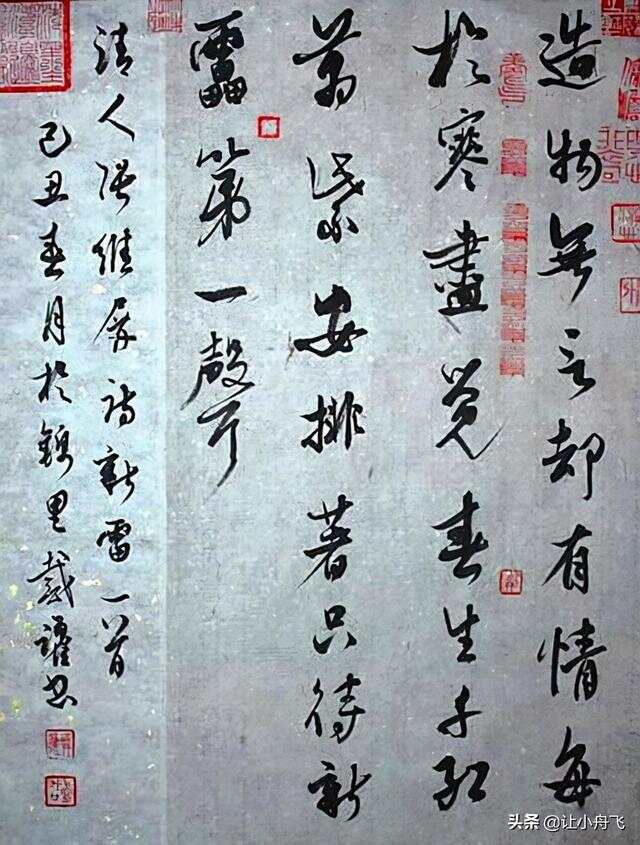 造物無言却有情每
於寒盡覺春生千紅
萬紫安排著只待新
靁第一聲
清人張維屏詩新雷一首
己丑春月於錦里戴書
头条 @让小舟飞